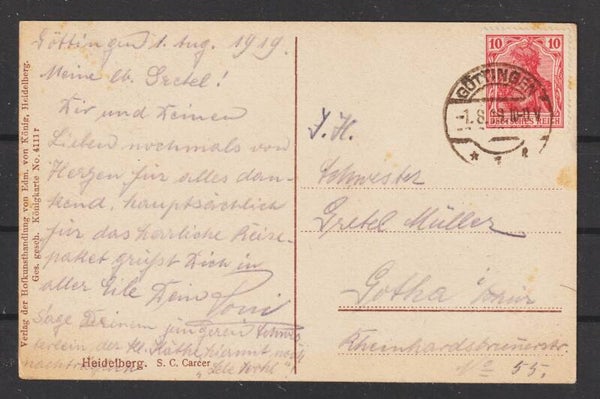 Göttingen 1. Aug. 1919.
Meine lb. Gretel!
Dir und Deinen
Lieben nochmals von
Herzen für alles dan-
kend, hauptsächlich
für das herrliche Reise-
paket grüßt Dich in
aller Eile Dein Toni
Sage Deinem jüngeren Schwes-
terlein der kl. Käthe hiermit noch
nachträglich "Lebe Wohl"
Heidelberg. S. C. Carcer
Verlag der Hofkunsthandlung von Edm. von König, Heidelberg.
Ges. gesch. Königkarte No. 4111 r
10 10
DEUTSCHES REICH
GÖTTINGEN
-1.8.19.10-11.V.
* 1 e
Schwester
Gretel Müller
Gotha i/Thür
Rheinhardsbrunnerstr.
No 55.